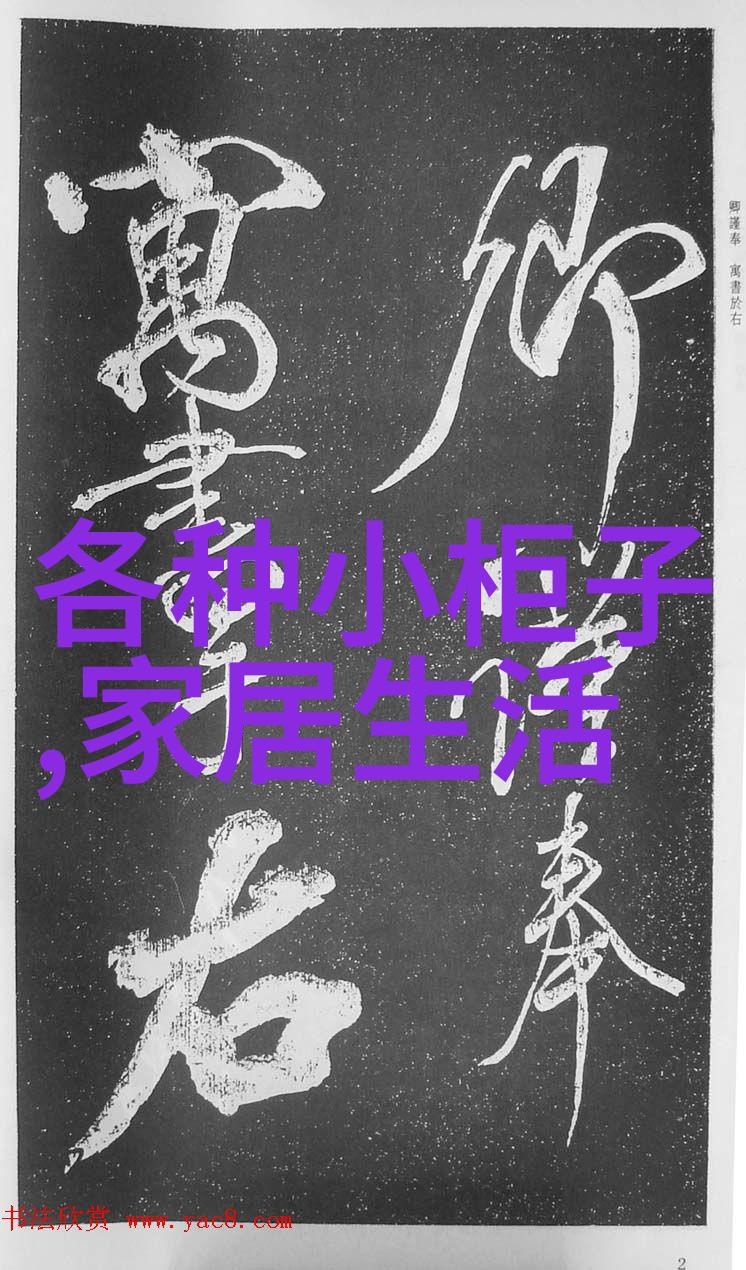 卿謹奉
寓書於右
卿謹奉　寓書於右
各种小柜子
,家居生活
书法欣赏 www.yac8.com
2